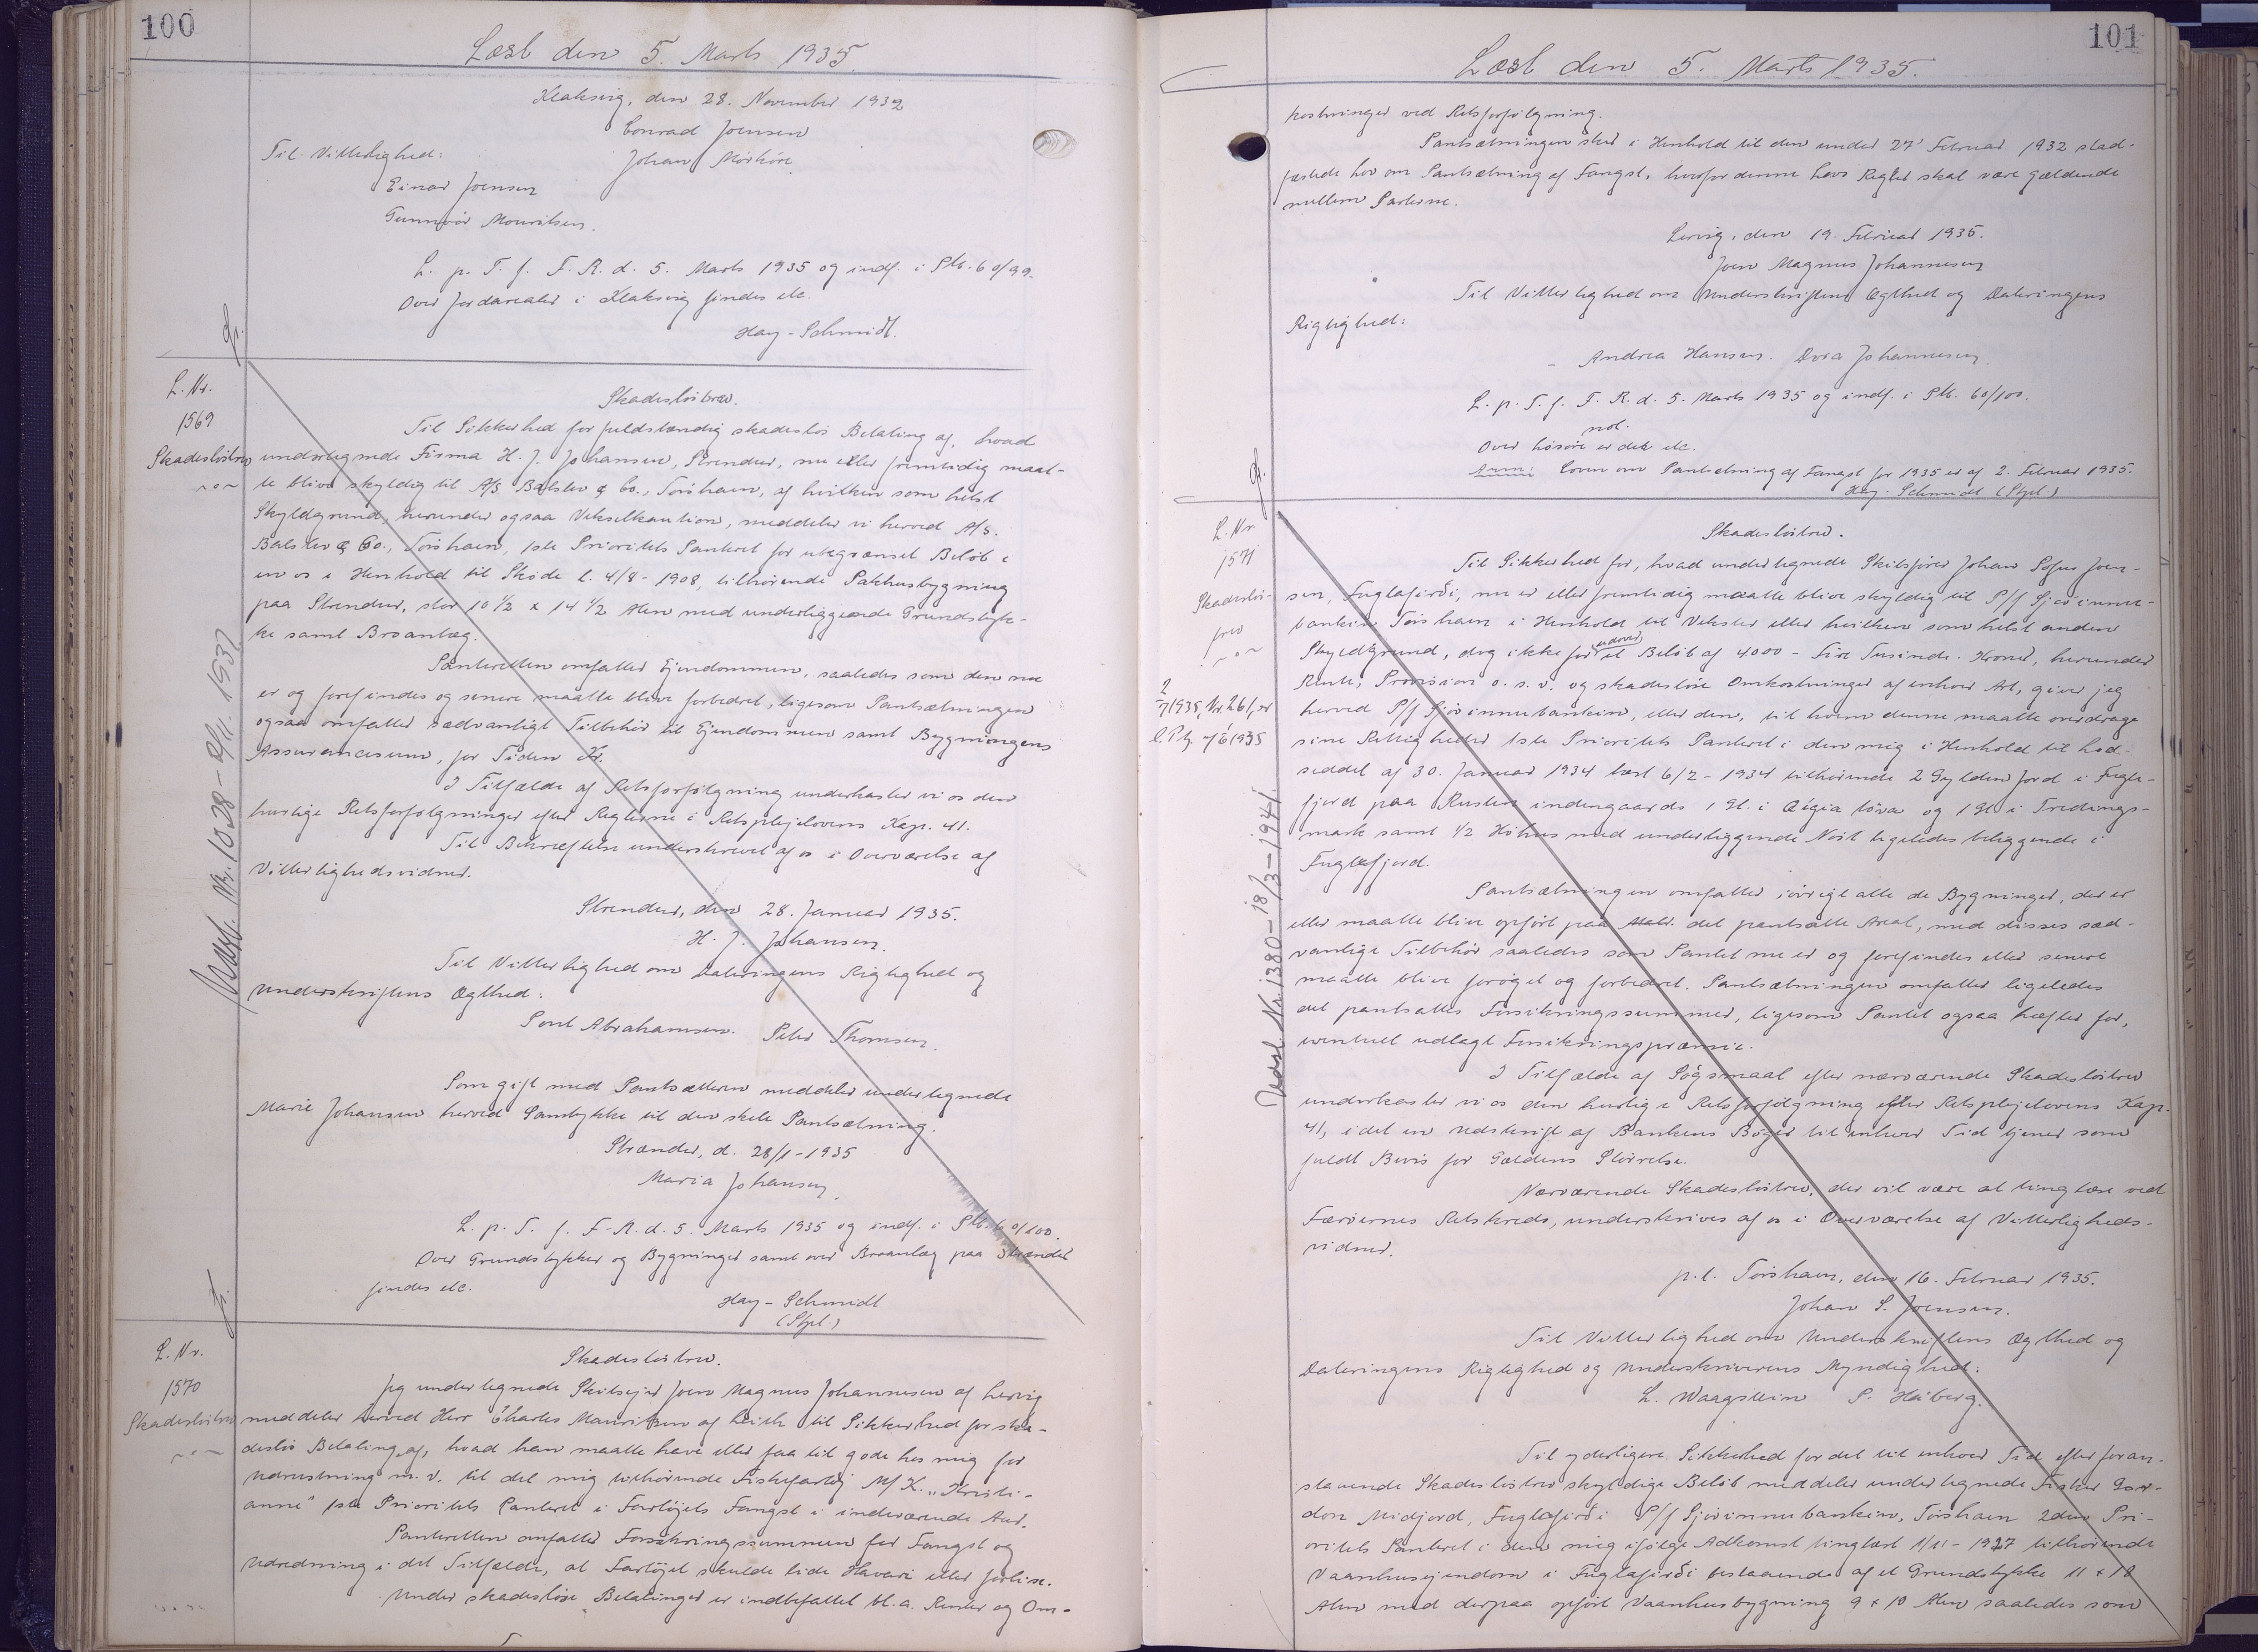 100
Læst den 5. Marts 1935.
Klaksvig, den 28. November 1932
Conrad Joensen
Til Vitterlighed:
Johan Mörköre.
Einar Joensen
Gunnvör Mouritsen.
L. p. T. f. F. R. d. 5. Marts 1935 og indf. i Ptb. 60/99.
Over Jordarealer i Klaksvig findes etc.
Hay-Schmidt.
L. Nr.
1569
Skadeslösbrev
Skadeslösbrev.
Til Sikkerhed for fuldstændig skadeslös Betaling af, hvad
undertegnede Firma H. J. Johansen, Strender, nu eller fremtidig maat-
te blive skyldig til A/S Balslev & Co., Torshavn, af hvilken som helst
Skyldgrund, herunder ogsaa Vekselkaution, meddeler vi herved A/S.
Balslev & Co., Torshavn, 1ste Prioritets Panteret for ubegrænset Belöb i
en os i Henhold til Skøde l. 4/8-1908, tilhörende Pakhusbygning
paa Strender, stor 10 1/2 x 14 1/2 Alen med underliggende Grundstyk-
ke samt Broanlæg.
Panteretten omfatter Ejendommen, saaledes som den nu
er og forefindes og senere maatte blive forbedret, ligesom Pantsætningen
ogsaa omfatter sædvanligt Tilbehör til Ejendommen samt Bygningens
Assurancesum, for Tiden Kr.
I Tilfælde af Retsforfölgning underkaster vi os den
hurtige Retsforfölgninger efter Reglerne i Retsplejelovens Kap. 41.
Til Bekræftelse underskrevet af os i Overværelse af
Vitterlighedsvidner.
Strender, den 28. Januar 1935.
H. J. Johansen.
Til Vitterlighed om Dateringens Rigtighed og
Underskriftens Ægthed:
Poul Abrahamsen. Peter Thomsen.
Som gift med Pantsætteren meddeler undertegnede
Marie Johansen herved Samtykke til den skete Pantsætning.
Strænder, d. 28/1-1935
Maria Johansen.
L. p. T. f. F-R. d. 5. Marts 1935 og indf. i Ptb. 60/100.
Over Grundstykker og Bygninger samt over Broanlæg paa Strænder
findes etc.
Hay-Schmidt
(Stpl.)
L. Nr.
1570
Skadeslösbrev
Skadeslösbrev.
Jeg undertegnede Skibsejer Joen Magnus Johannesen af Lervig
meddeler herved Herr Charles Mauritzen af Leith til Sikkerhed for ska-
deslös Betaling af, hvad han maatte have eller faa til gode hos mig for
Udrustning m. v. til det mig tilhörende Fiskefartöj M/K. "Kristi-
anne" 1ste Prioritets Panteret i Fartöjets Fangst i indeværende Aar.
Panteretten omfatter Forsikringssummen for Fangst og
Udredning i det Tilfælde, at Fartöjet skulde lide Havari eller forlise.
Under skadeslöse Betalinger er indbefattet bl. a. Renter og Om-
101
Læst den 5. Marts 1935.
kostninger ved Retsforfölgning.
Pantsætningen sker i Henhold til den under 27' Februar 1932 stad-
fæstede Lov om Pantsætning af Fangst, hvorfor denne Lovs Regler skal være gældende
mellem Parterne.
Lervig, den 19. Februar 1935.
Joen Magnus Johannesen
Til Vitterlighed om Underskriftens Ægthed og Dateringens
Rigtighed:
Andrea Hansen. Dora Johannesen.
L. p. T. f. F. R. d. 5. Marts 1935 og indf. i Ptb. 60/100.
not.
Over lösöre er der etc.
Anm: Loven om Pantsætning af Fangst for 1935 er af 2. Februar 1935.
Hay-Schmidt (Stpl.)
L. Nr.
1571
Skadeslös-
brev
Skadeslösbrev.
Til Sikkerhed for, hvad undertegnede Skibsförer Johan Sofus Joen-
sen, Fuglafirði, nu er eller fremtidig maatte blive skyldig til P/f Sjóvinnu-
bankin Torshavn i Henhold til Veksler eller hvilken som helst anden
Skyldgrund, dog ikke for udover et Belöb af 4000 - Fire Tusinde - Kroner, herunder
Rente, Provision o. s. v. og skadeslöse Omkostninger af enhver Art, giver jeg
herved P/f Sjóvinnubankin, eller den, til hvem denne maatte overdrage
sine Rettigheder 1ste Prioritets Panteret i den mig i Henhold til Lod-
seddel af 30. Januar 1934 læst 6/2-1934 tilhörende 2 Gylden Jord i Fugle-
fjord paa Rusten indengaards 1 Gl. i Ægia löva og 1 Gl. i Tredings-
mark samt 1/2 Höhus med underliggende Nøst ligeledes beliggende i
Fuglefjord.
Pantsætningen omfatter iövrigt alle de Bygninger, der er
eller maatte blive opfört paa det pantsatte Areal, med disses sæd-
vanlige Tilbehör saaledes som Pantet nu er og forefindes eller senere
maatte blive foröget og forbedret. Pantsætningen omfatter ligeledes
det pantsattes Forsikringssummer, ligesom Pantet ogsaa hæfter for,
eventuel udlagt Forsikringspræmie.
I Tilfælde af Sögsmaal efter nærværende Skadeslösbrev
underkaster vi os den hurtige Retsforfölgning efter Retsplejelovens Kap.
41, idet en Udskrift af Bankens Böger til enhver Tid tjener som
fuldt Bevis for Gældens Störrelse.
Nærværende Skadeslösbrev, der vil være at tinglæse ved
Færöernes Retskreds, underskrives af os i Overværelse af Vitterligheds-
vidner.
p.t. Torshavn, den 16. Februar 1935.
Johan S. Joensen.
Til Vitterlighed om Underskriftens Ægthed og
Dateringens Rigtighed og Underskriverens Myndighed:
L. Waagstein P. Háberg.
Til yderligere Sikkerhed for det til enhver Tid efter foran-
staaende Skadeslösbrev skyldige Belöb meddeler undertegnede Fisker Gor-
don Midjord, Fuglafirði P/f Sjóvinnubankin, Torshavn 2den Pri-
oritets Panteret i den mig ifölge Adkomst tinglæst 1/11-1927 tilhörende
Vaanhusejendom i Fuglafirði bestaaende af et Grundstykke 11 x 18
Alen med derpaa opfört Vaanhusbygning 9 x 10 Alen saaledes som
Nr. 1028 - 2/11. 1937
Nr. 1380 - 18/3-1941.